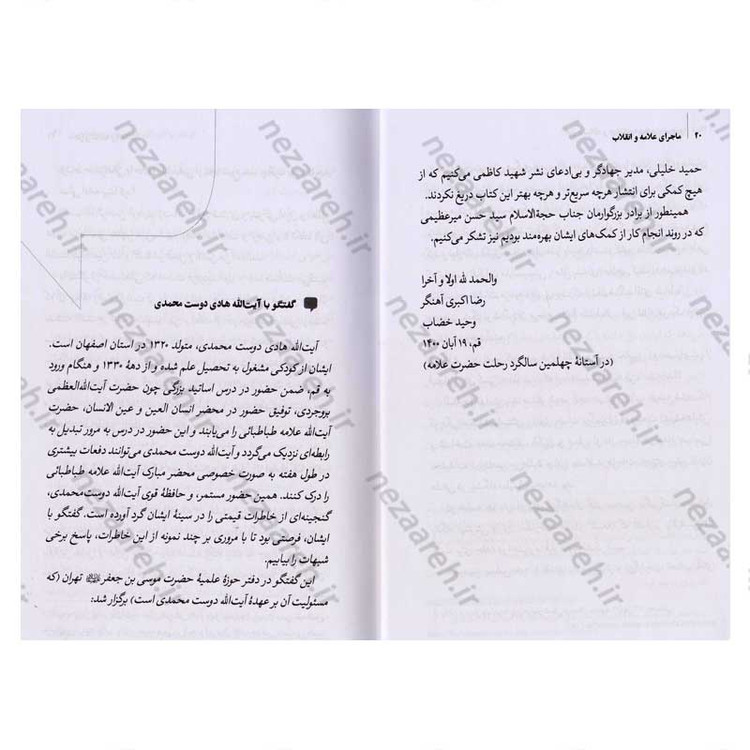 ۲۰ | ماجرای علامه و انقلاب
حمید خلیلی، مدیر جهادگر و بی‌ادعای نشر شهید کاظمی می‌کنیم که از
هیچ کمکی برای انتشار هرچه سریع‌تر و هرچه بهتر این کتاب دریغ نکردند.
همینطور از برادر بزرگوارمان جناب حجةالاسلام سید حسن میرعظیمی
که در روند انجام کار از کمک‌های ایشان بهره‌مند بودیم نیز تشکر می‌کنیم.
والحمد لله اولا و آخرا
رضا اکبری آهنگر
وحید خضاب
قم، ۱۹ آبان ۱۴۰۰
(در آستانهٔ چهلمین سالگرد رحلت حضرت علامه)
گفتگو با آیت‌الله هادی دوست محمدی
آیت‌الله هادی دوست محمدی، متولد ۱۳۲۰ در استان اصفهان است.
ایشان از کودکی مشغول به تحصیل علم شده و از دههٔ ۱۳۳۰ و هنگام ورود
به قم، ضمن حضور در درس اساتید بزرگی چون حضرت آیت‌الله‌العظمی
بروجردی، توفیق حضور در محضر انسان العین و عین الانسان، حضرت
آیت‌الله علامه طباطبائی را می‌یابند و این حضور در درس به مرور تبدیل به
رابطه‌ای نزدیک می‌گردد و آیت‌الله دوست محمدی می‌توانند دفعات بیشتری
در طول هفته به صورت خصوصی محضر مبارک آیت‌الله علامه طباطبائی
را درک کنند. همین حضور مستمر، و حافظهٔ قوی آیت‌الله دوست‌محمدی،
گنجینه‌ای از خاطرات قیمتی را در سینهٔ ایشان گرد آورده است. گفتگو با
ایشان، فرصتی بود تا با مروری بر چند نمونه از این خاطرات، پاسخ برخی
شبهات را بیابیم.
این گفتگو در دفتر حوزهٔ علمیهٔ حضرت موسی بن جعفر تهران (که
مسئولیت آن بر عهدهٔ آیت‌الله دوست محمدی است) برگزار شد:
nezaareh.ir